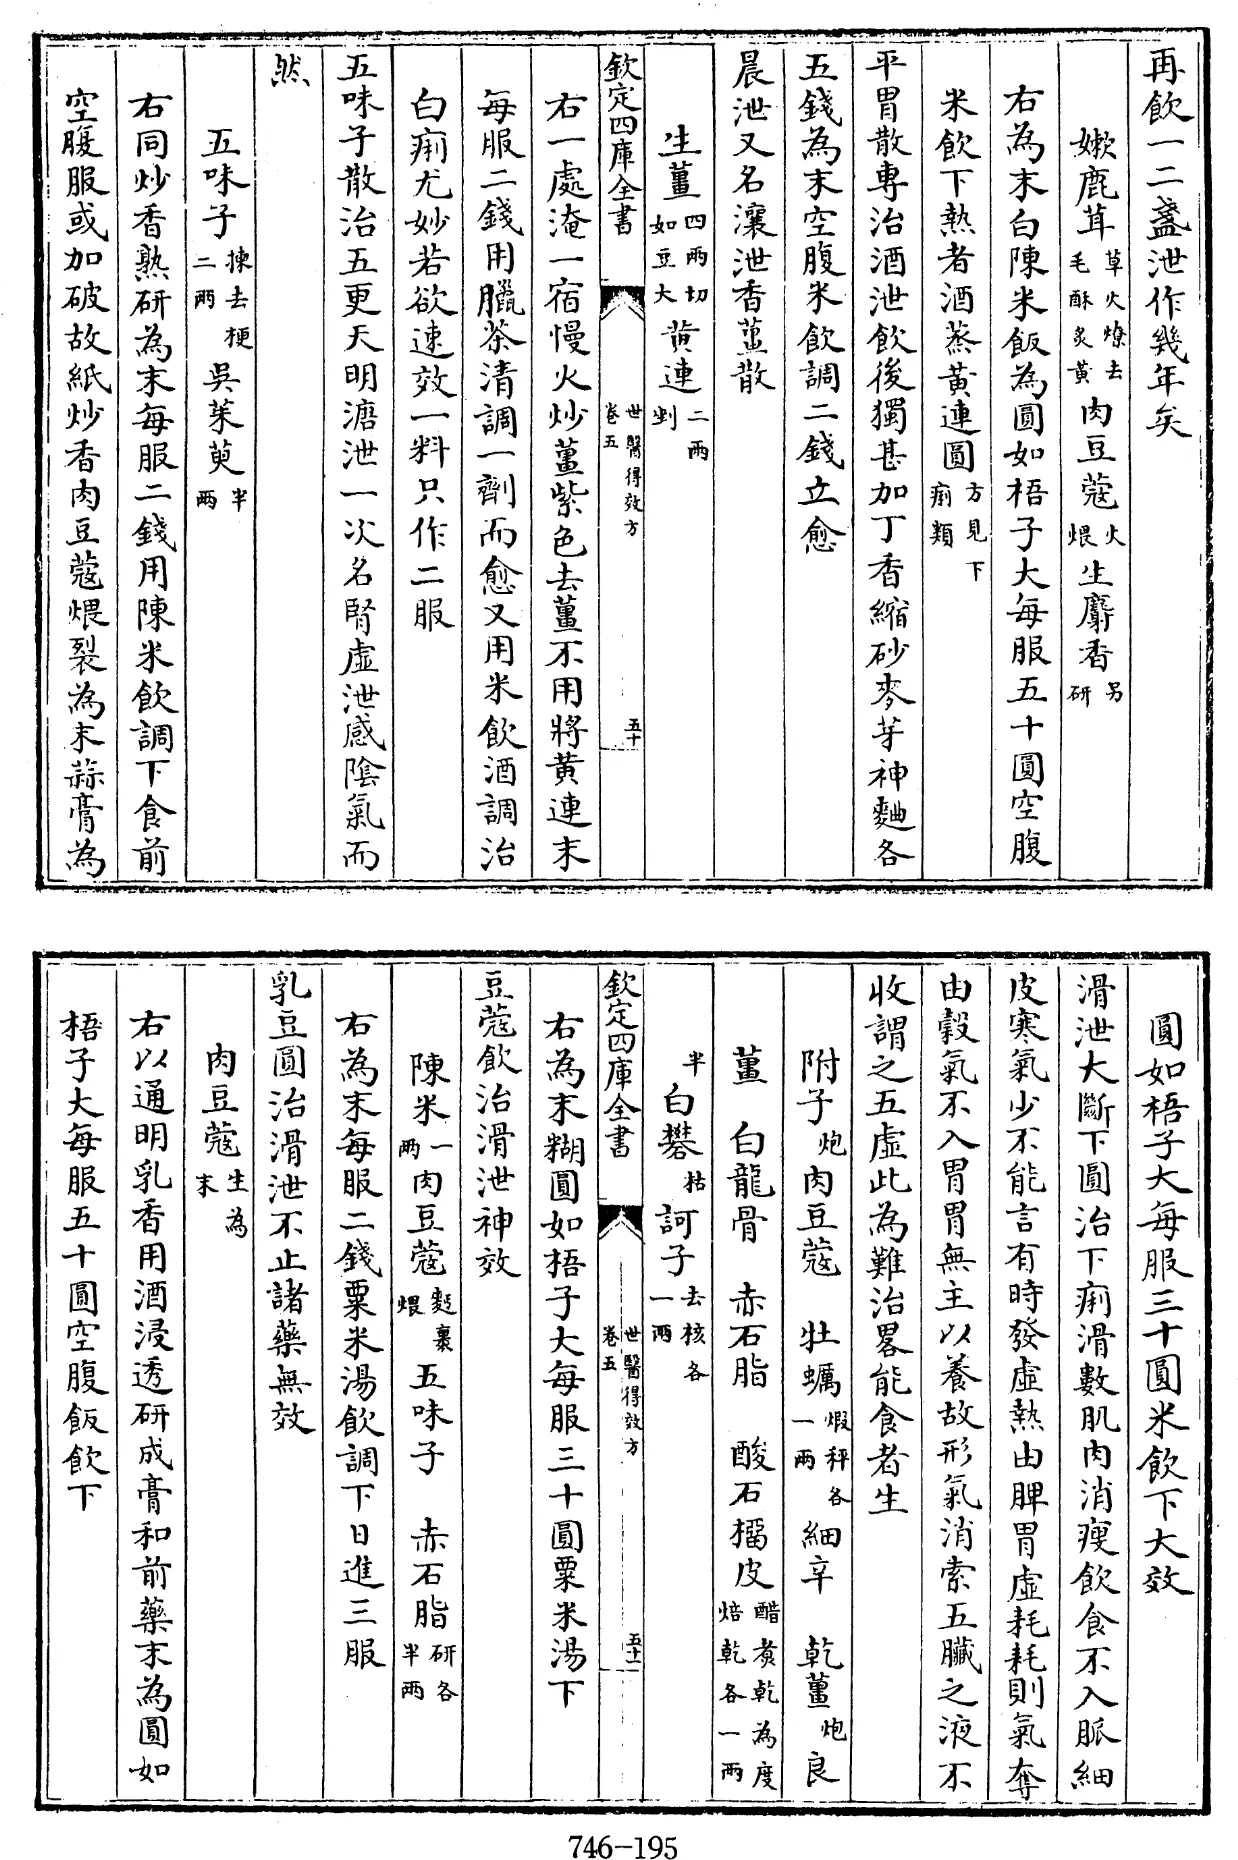 再飲一二盞泄作幾年矣
嫰鹿茸草火燎去毛酥炙黄肉豆蔻火煨生麝香另研
右為末白陳米飯為圓如梧子大每服五十圓空腹
米飲下熱者酒蒸黄連圓方見下痢類
平胃散專治酒泄飲後獨甚加丁香縮砂麥芽神麯各
五錢為末空腹米飲調二錢立愈
晨泄又名瀼泄香薑散
生薑四兩切如豆大黄連二兩剉
欽定四庫全書 世醫得效方 卷五 五十
右一處淹一宿慢火炒薑紫色去薑不用將黄連末
每服二錢用臘茶清調一劑而愈又用米飲酒調治
白痢尤妙若欲速效一料只作二服
五味子散治五更天明溏泄一次名腎虛泄感陰氣而
然
五味子揀去梗二兩吳茱萸半兩
右同炒香熟研為末每服二錢用陳米飲調下食前
空腹服或加破故紙炒香肉豆蔻煨裂為末蒜膏為
圓如梧子大每服三十圓米飲下大效
滑泄大斷下圓治下痢滑數肌肉消瘦飲食不入脈細
皮寒氣少不能言有時發虛熱由脾胃虛耗耗則氣奪
由穀氣不入胃胃無主以養故形氣消索五臟之液不
收謂之五虛此為難治畧能食者生
附子炮肉豆蔻 牡蠣煅秤各一兩細辛 乾薑炮良
薑 白龍骨 赤石脂 酸石榴皮醋煑乾為度焙乾各一兩
半白礬枯訶子去核各一兩
欽定四庫全書 世醫得效方 卷五 五十一
右為末糊圓如梧子大每服三十圓粟米湯下
豆蔻飲治滑泄神效
陳米一兩肉豆蔻麪裹煨五味子 赤石脂研各半兩
右為末每服二錢粟米湯飲調下日進三服
乳豆圓治滑泄不止諸藥無效
肉豆蔻生為末
右以通明乳香用酒浸透研成膏和前藥末為圓如
梧子大每服五十圓空腹飯飲下
746-195